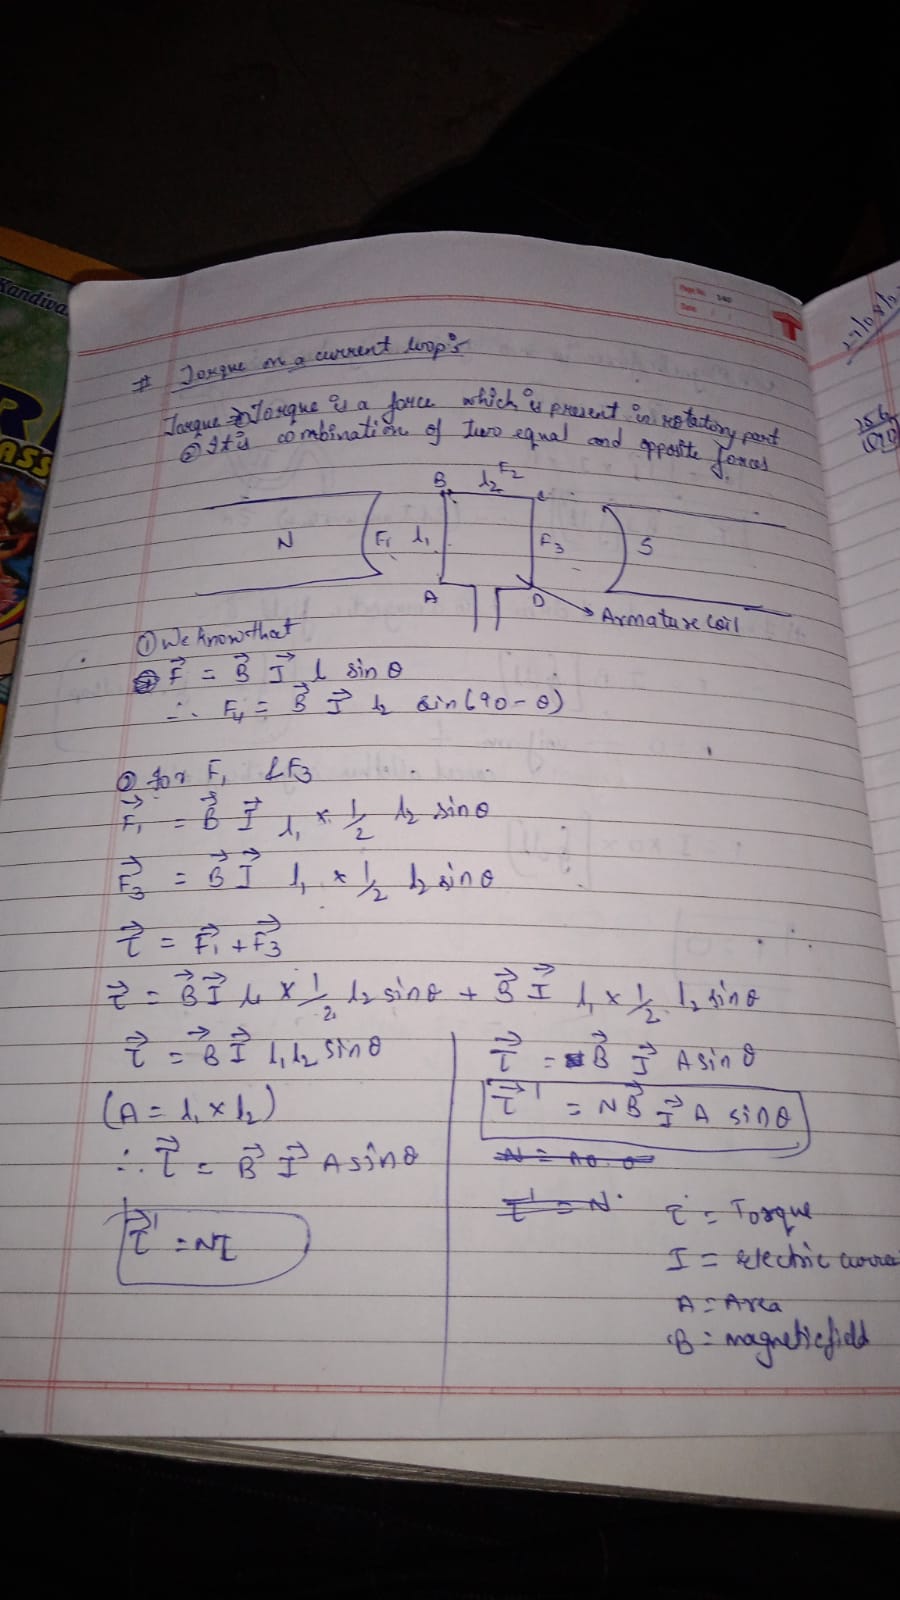 Kandiva
R
ASS
Page No. 140
Date
T
# Torque on a current loop's
Torque → Torque is a force which is present in rotatory part
② It is combination of two equal and opposite forces
B l₂ F₂ C
N F₁ l₁ F₃ S
A D → Armature coil
① We know that
F⃗ = B⃗ I⃗ l sin θ
∴ F₄ = B⃗ I⃗ l₂ sin(90 - θ)
② for F₁ & F₃
F⃗₁ = B⃗ I⃗ l₁ × 1/2 l₂ sinθ
F⃗₃ = B⃗ I⃗ l₁ × 1/2 l₂ sinθ
τ⃗ = F⃗₁ + F⃗₃
τ⃗ = B⃗ I⃗ l₁ × 1/2 l₂ sinθ + B⃗ I⃗ l₁ × 1/2 l₂ sinθ
τ⃗ = B⃗ I⃗ l₁ l₂ sinθ
(A = l₁ × l₂)
∴ τ⃗ = B⃗ I⃗ A sinθ
τ⃗' = Nτ
τ⃗ = B⃗ I⃗ A sinθ
τ⃗' = N B⃗ I⃗ A sinθ
τ = Torque
I = electric curre
A = Area
B = magnetic field